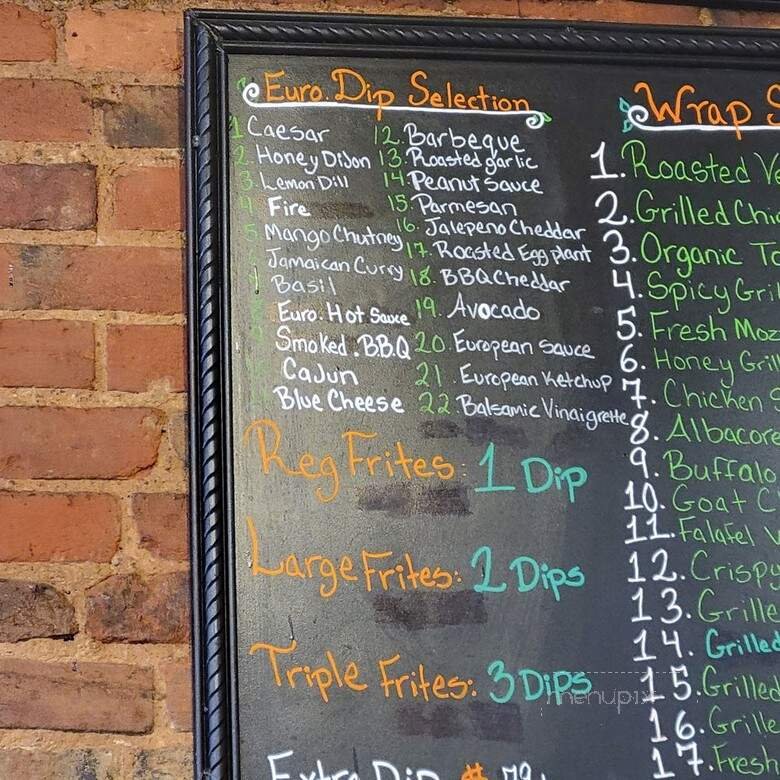 Euro. Dip Selection
1 Caesar
2. Honey Dijon
3. Lemon Dill
4 Fire
5 Mango Chutney
Jamaican Curry
Basil
Euro. Hot Sauce
Smoked .BBQ
Cajun
Blue Cheese
12. Barbeque
13. Roasted garlic
14. Peanut sauce
15. Parmesan
16. Jalepeno Cheddar
17. Roasted Eggplant
18. BBQ Cheddar
19. Avocado
20. European sauce
21. European Ketchup
22. Balsamic Vinaigrette
Reg Frites: 1 Dip
Large Frites: 2 Dips
Triple Frites: 3 Dips
Extra Dip
Wrap S
1. Roasted Ve
2. Grilled Chi
3. Organic To
4. Spicy Gril
5. Fresh Moz
6. Honey Gril
7. Chicken
8. Albacore
9. Buffalo
10. Goat C
11. Falafel
12. Crispy
13. Grille
14. Grilled
15. Grilled
16. Grille
17. Fresh
menupix